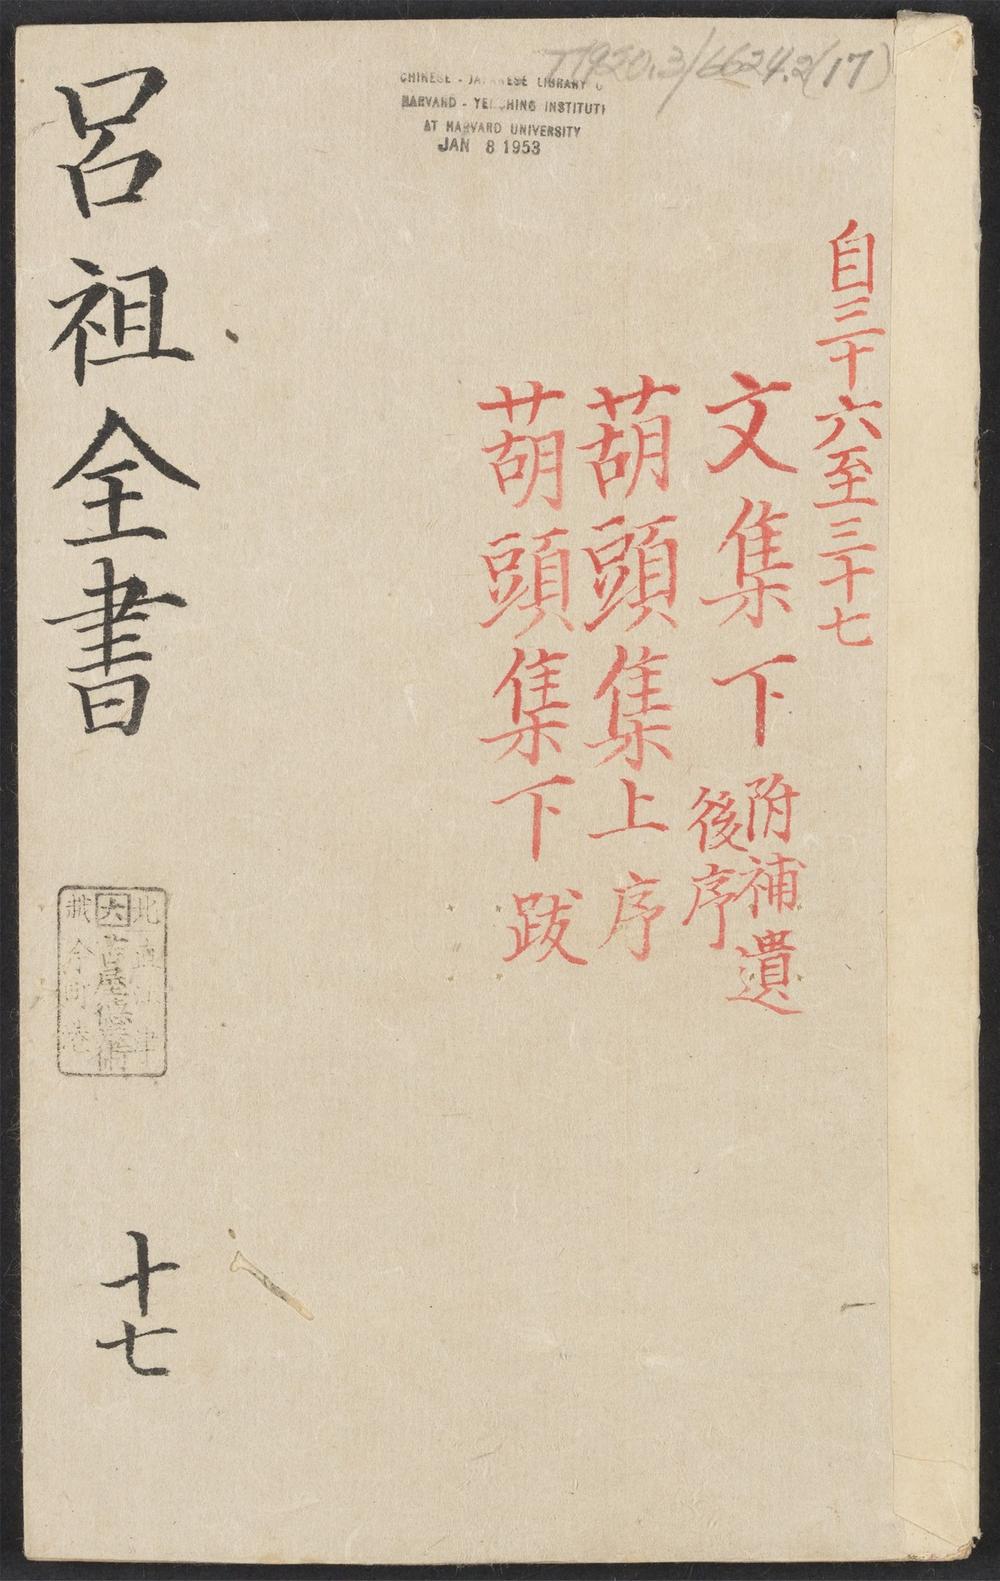 T1920.3/6624.2(17)
CHINESE - JAPANESE LIBRARY
HARVARD - YENCHING INSTITUTE
AT HARVARD UNIVERSITY
JAN 8 1953
自三十六至三十七
文集下 附補遺
後序
葫頭集上 序
葫頭集下 跋
呂祖全書
十七